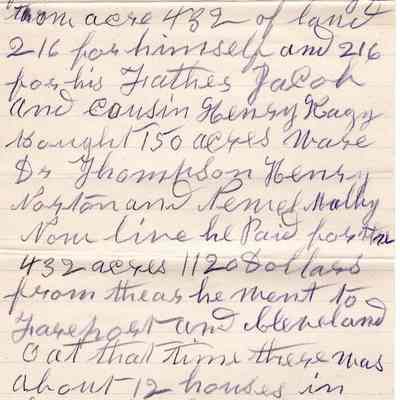 from acre 432 of land
216 for himself and 216
for his Father Jacob
and cousin Henry Kagy
bought 150 acres ware
Dr Thompson Henry
Norton and
Now live he Paid for
432 acres 1120 Dollars
from thear he went to
Fareport and Cleveland
O at that time there was
about 12 houses in